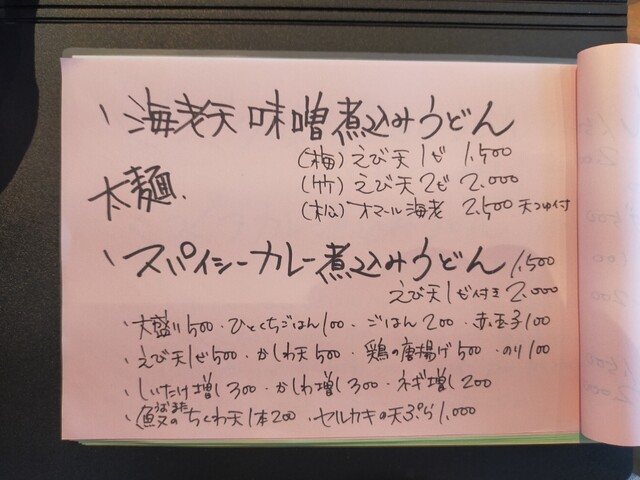 、海老天味噌煮込みうどん
太麺、
(梅) えび天1ピ 1,500
(竹) えび天2ピ 2,000
(松) オマール海老 2,500 天つゆ付
、スパイシーカレー煮込みうどん 1,500
えび天1ピ付き 2,000
・大盛り500・ひとくちごはん100・ごはん200・赤玉子100
・えび天1ピ500・かしわ天500・鶏の唐揚げ500・のり100
・しいたけ増し300・かしわ増し300・ネギ増し200
・のちくわ天1本200・セルカキの天ぷら1,000